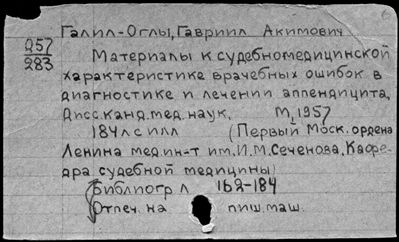 Галил-Оглы, Гавриил Акимович
Д57
283
Материалы к судебномедицинской
характеристике врачебных ошибок в
диагностике и лечении аппендицита.
Дисс. канд. мед. наук. М, 1957
184 л с илл (Первый Моск. ордена
Ленина мед. ин-т им. И.М. Сеченова. Кафе-
дра судебной медицины)
Библиогр л 162-184
Отпеч. на пиш маш.